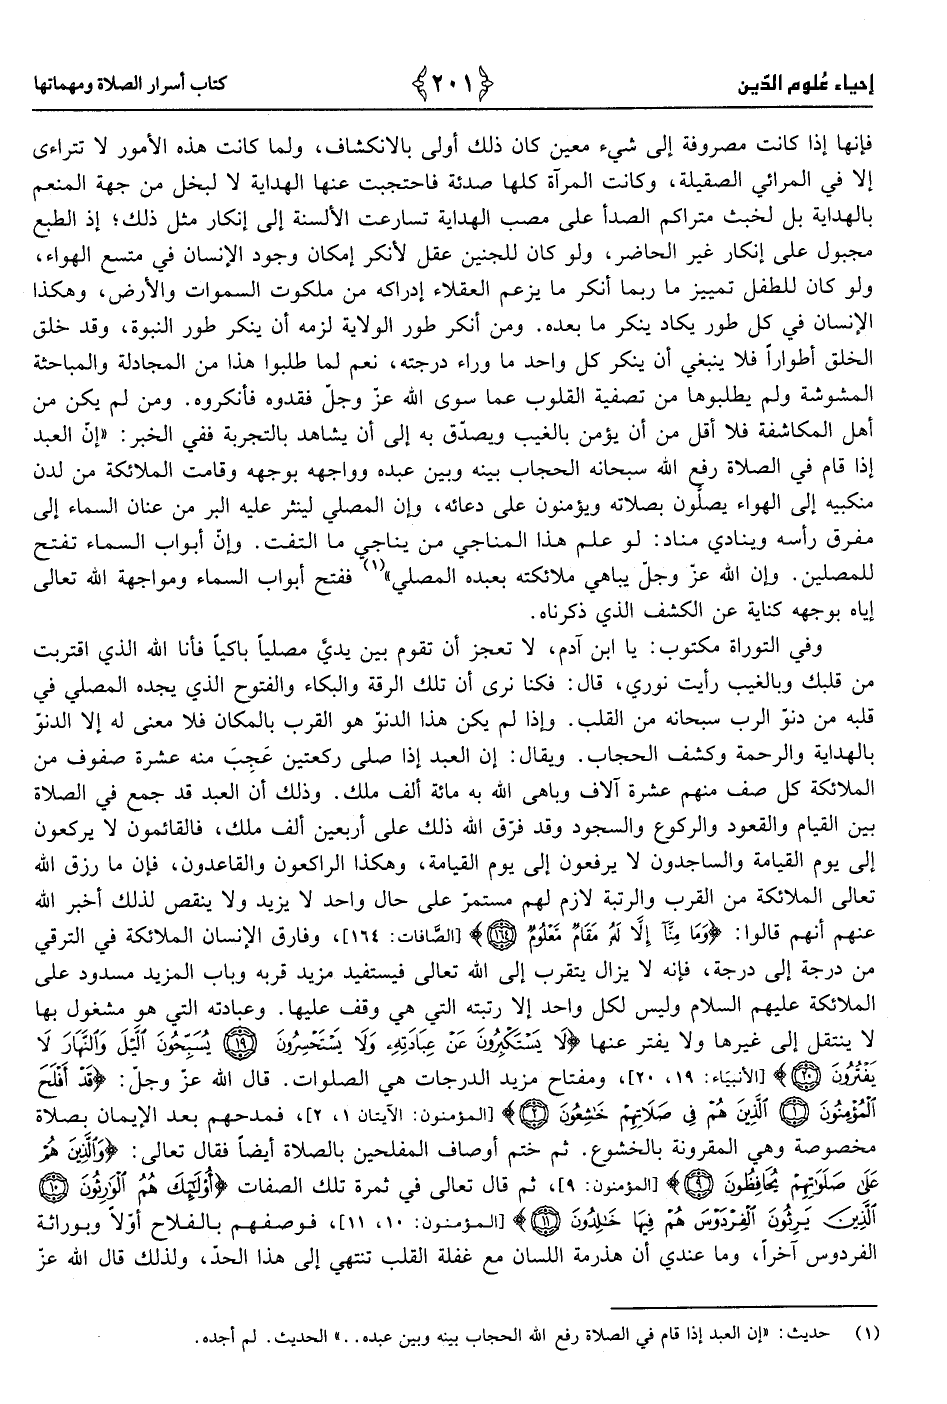 إحياء عُلوم الدّين ﴿٢٠١﴾ كتاب أسرار الصلاة ومهماتها
فإنها إذا كانت مصروفة إلى شيء معين كان ذلك أولى بالانكشاف، ولما كانت هذه الأمور لا تتراءى
إلا في المرائي الصقيلة، وكانت المرآة كلها صدئة فاحتجبت عنها الهداية لا لبخل من جهة المنعم
بالهداية بل لخبث متراكم الصدأ على مصب الهداية تسارعت الألسنة إلى إنكار مثل ذلك؛ إذ الطبع
مجبول على إنكار غير الحاضر، ولو كان للجنين عقل لأنكر إمكان وجود الإنسان في متسع الهواء،
ولو كان للطفل تمييز ما ربما أنكر ما يزعم العقلاء إدراكه من ملكوت السموات والأرض، وهكذا
الإنسان في كل طور يكاد ينكر ما بعده. ومن أنكر طور الولاية لزمه أن ينكر طور النبوة، وقد خلق
الخلق أطواراً فلا ينبغي أن ينكر كل واحد ما وراء درجته، نعم لما طلبوا هذا من المجادلة والمباحثة
المشوشة ولم يطلبوها من تصفية القلوب عما سوى الله عزّ وجلّ فقدوه فأنكروه. ومن لم يكن من
أهل المكاشفة فلا أقل من أن يؤمن بالغيب ويصدّق به إلى أن يشاهد بالتجربة ففي الخبر: «إنّ العبد
إذا قام في الصلاة رفع الله سبحانه الحجاب بينه وبين عبده وواجهه بوجهه وقامت الملائكة من لدن
منكبيه إلى الهواء يصلُّون بصلاته ويؤمنون على دعائه، وإن المصلي لينثر عليه البر من عنان السماء إلى
مفرق رأسه وينادي مناد: لو علم هذا المناجي من يناجي ما التفت. وإنّ أبواب السماء تفتح
للمصلين. وإن الله عزّ وجلّ يباهي ملائكته بعبده المصلي»(١) ففتح أبواب السماء ومواجهة الله تعالى
إياه بوجهه كناية عن الكشف الذي ذكرناه.
وفي التوراة مكتوب: يا ابن آدم، لا تعجز أن تقوم بين يديَّ مصلياً باكياً فأنا الله الذي اقتربت
من قلبك وبالغيب رأيت نوري، قال: فكنا نرى أن تلك الرقة والبكاء والفتوح الذي يجده المصلي في
قلبه من دنوّ الرب سبحانه من القلب. وإذا لم يكن هذا الدنوّ هو القرب بالمكان فلا معنى له إلا الدنوّ
بالهداية والرحمة وكشف الحجاب. ويقال: إن العبد إذا صلى ركعتين عَجِبَ منه عشرة صفوف من
الملائكة كل صف منهم عشرة آلاف وباهى الله به مائة ألف ملك. وذلك أن العبد قد جمع في الصلاة
بين القيام والقعود والركوع والسجود وقد فرّق الله ذلك على أربعين ألف ملك، فالقائمون لا يركعون
إلى يوم القيامة والساجدون لا يرفعون إلى يوم القيامة، وهكذا الراكعون والقاعدون، فإن ما رزق الله
تعالى الملائكة من القرب والرتبة لازم لهم مستمرّ على حال واحد لا يزيد ولا ينقص لذلك أخبر الله
عنهم أنهم قالوا: ﴿وَمَا مِنَّآ إِلَّا لَهُۥ مَقَامٌ مَّعْلُومٌ ١٦٤﴾ [الصَّافات: ١٦٤]، وفارق الإنسان الملائكة في الترقي
من درجة إلى درجة، فإنه لا يزال يتقرب إلى الله تعالى فيستفيد مزيد قربه وباب المزيد مسدود على
الملائكة عليهم السلام وليس لكل واحد إلا رتبته التي هي وقف عليها. وعبادته التي هو مشغول بها
لا ينتقل إلى غيرها ولا يفتر عنها ﴿لَا يَسْتَكْبِرُونَ عَنْ عِبَادَتِهِۦ وَلَا يَسْتَحْسِرُونَ ١٩ يُسَبِّحُونَ ٱلَّيْلَ وَٱلنَّهَارَ لَا
يَفْتُرُونَ ٢٠﴾ [الأنبيَاء: ١٩، ٢٠]، ومفتاح مزيد الدرجات هي الصلوات. قال الله عزّ وجلّ: ﴿قَدْ أَفْلَحَ
ٱلْمُؤْمِنُونَ ١ ٱلَّذِينَ هُمْ فِى صَلَاتِهِمْ خَٰشِعُونَ ٢﴾ [المؤمنون: الآيتان ١، ٢]، فمدحهم بعد الإيمان بصلاة
مخصوصة وهي المقرونة بالخشوع. ثم ختم أوصاف المفلحين بالصلاة أيضاً فقال تعالى: ﴿وَٱلَّذِينَ هُمْ
عَلَىٰ صَلَوَٰتِهِمْ يُحَافِظُونَ ٩﴾ [المؤمنون: ٩]، ثم قال تعالى في ثمرة تلك الصفات ﴿أُو۟لَٰٓئِكَ هُمُ ٱلْوَٰرِثُونَ ١٠
ٱلَّذِينَ يَرِثُونَ ٱلْفِرْدَوْسَ هُمْ فِيهَا خَٰلِدُونَ ١١﴾ [المؤمنون: ١٠، ١١]، فوصفهم بالفلاح أوّلاً وبوراثة
الفردوس آخراً، وما عندي أن هذرمة اللسان مع غفلة القلب تنتهي إلى هذا الحدّ، ولذلك قال الله عزّ
(١) حديث: «إن العبد إذا قام في الصلاة رفع الله الحجاب بينه وبين عبده..» الحديث. لم أجده.